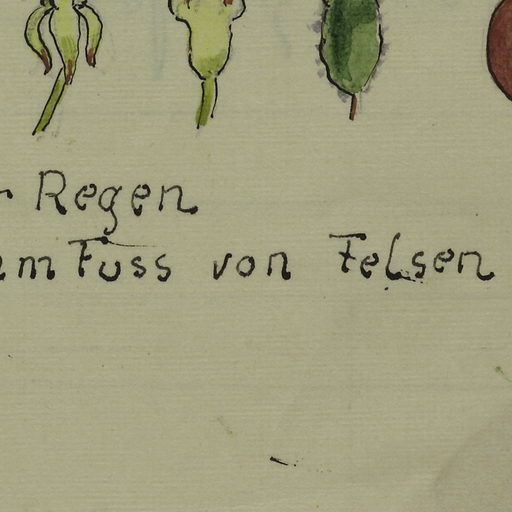 Regen
am Fuss von Felsen